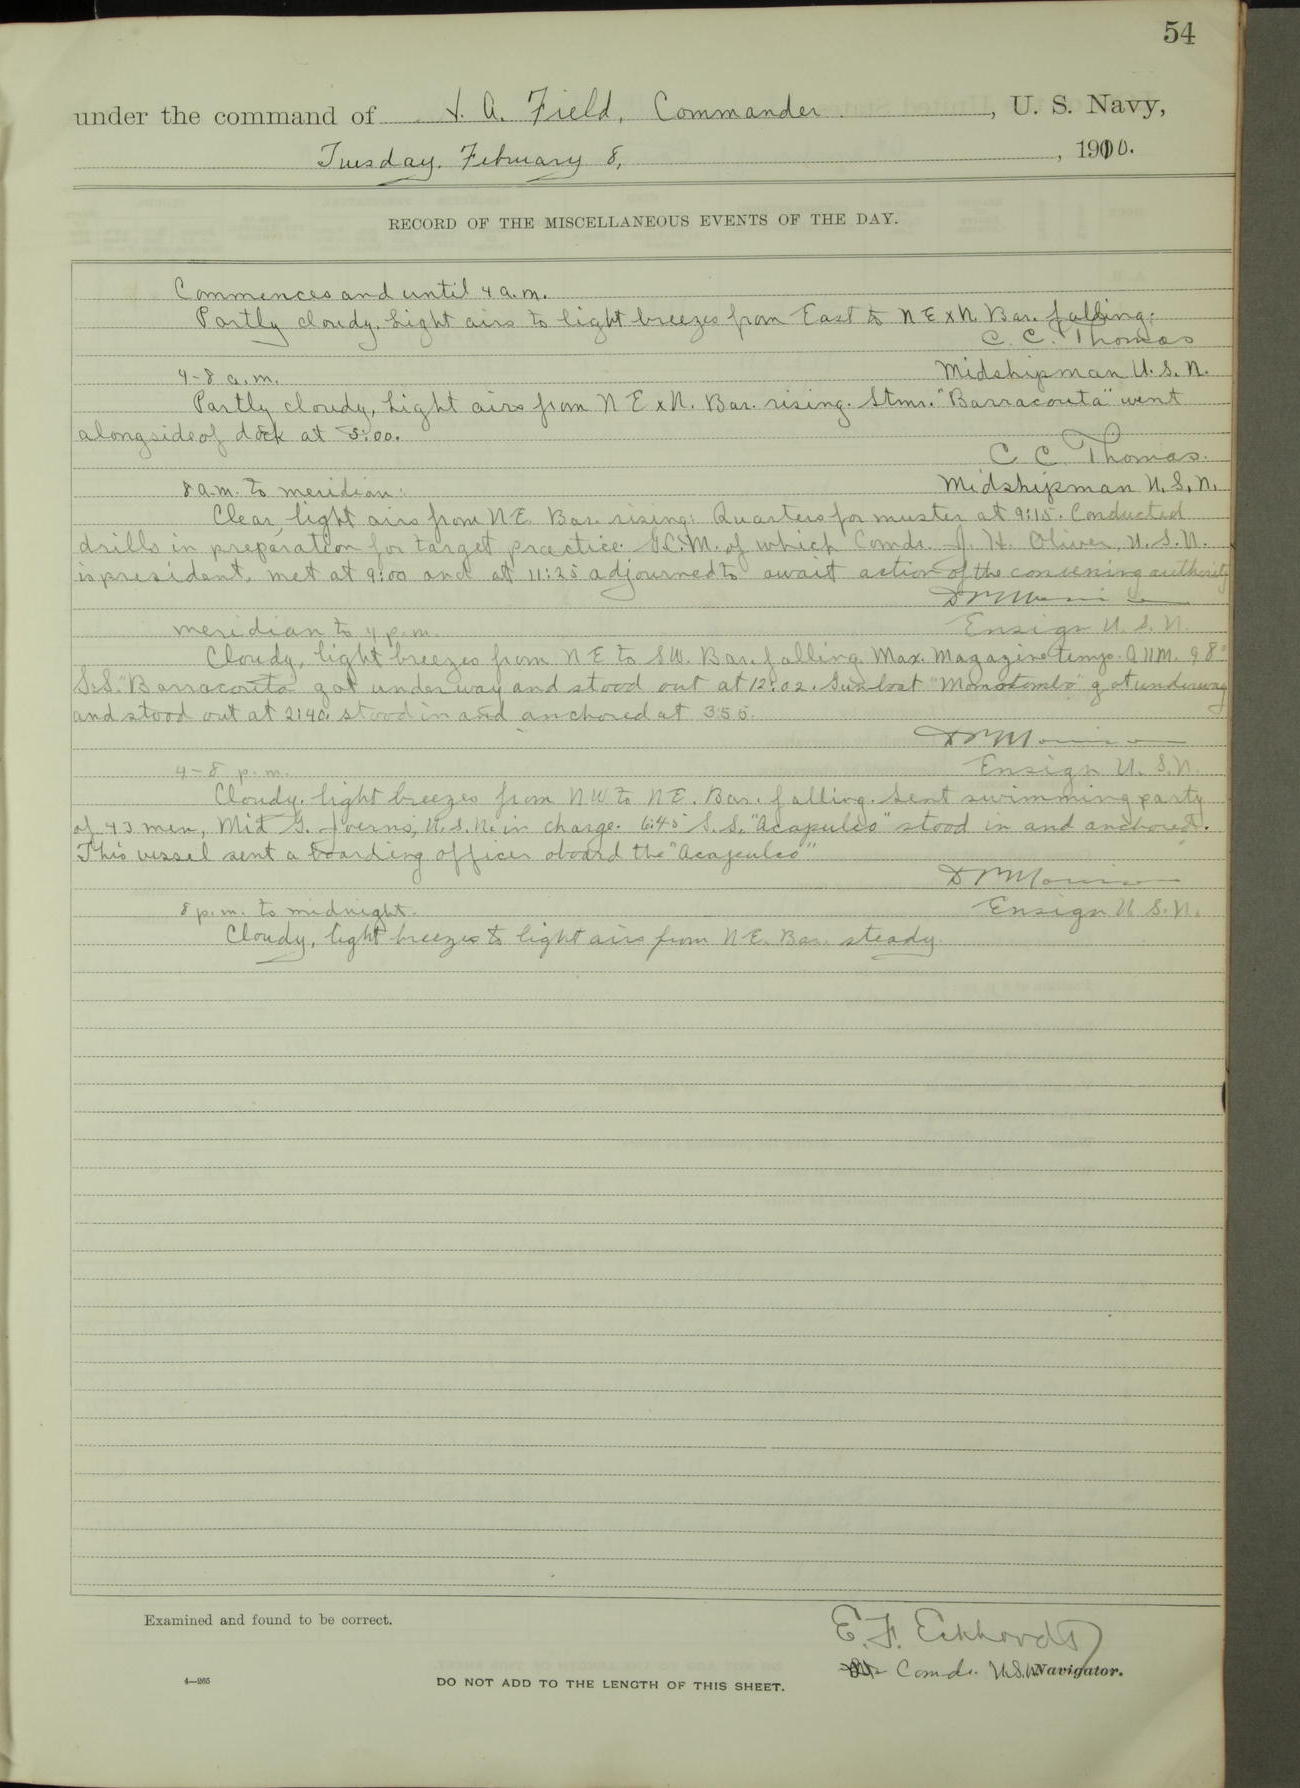 54
under the command of A. Field, Commander, U. S. Navy,
Tuesday, February 8, 1910.
RECORD OF THE MISCELLANEOUS EVENTS OF THE DAY.
Commences and until 4 a.m.
Partly cloudy. Light airs to light breezes from East to NExN. Bar. falling.
C. C. Thomas
Midshipman U. S. N.
4-8 a.m.
Partly cloudy, Light airs from NExN. Bar. rising. Stmr. "Barracouta" went
alongside of dock at
C C Thomas.
Midshipman U. S. N.
8 a.m. to meridian:
Clear, light airs from NE. Bar. rising. Quarters for muster at 9:15. Conducted
drills in preparation for target practice. G.C.M. of which Comdr. J. H. Oliver, U.S.N.
is president, met at 9:00 and at 11:25 adjourned to await action of the convening authority
Ensign U. S. N.
meridian to 4 p.m.
Cloudy, light breezes from NE to SW. Bar. falling. Max. Magazine temp. 98°
S.S. "Barracouta" got underway and stood out at 12:02. Gunboat "Momotombo" got underway
and stood out at 2:40. stood in and anchored at 3:55.
Ensign U. S. N.
4-8 p.m.
Cloudy. light breezes from NW to NE. Bar. falling. Sent swimming party
of 43 men, Mid G. Joerns, U.S.N. in charge. 6:45 S.S. "Acapulco" stood in and anchored.
This vessel sent a boarding officer aboard the "Acapulco"
Ensign U. S. N.
8 p.m. to midnight.
Cloudy, light breezes to light airs from NE. Bar. steady.
Examined and found to be correct.
E. F. Eckhardt
Comdr. U.S.N. Navigator.
4—265
DO NOT ADD TO THE LENGTH OF THIS SHEET.